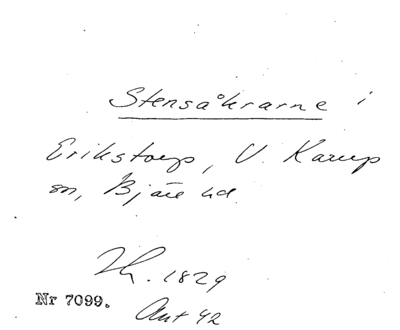 Stensåkrarne i
Erikstorp, V. Karup
sn, Bjäre hd.
Th. 1829
Nr 7099.
Aut 42